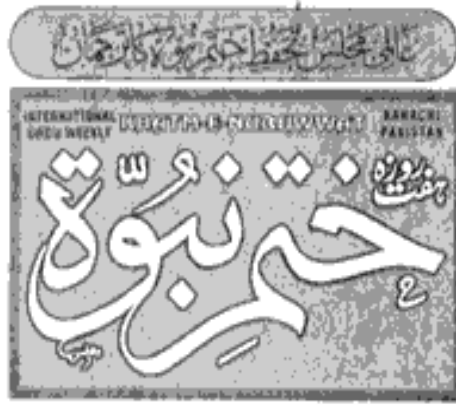 عالمی مجلس تحفظ ختم نبوۃ کا ترجمان
INTERNATIONAL URDU WEEKLY KHATM-E-NUBUWWAT KARACHI PAKISTAN
ہفت روزہ
ختم نبوّۃ